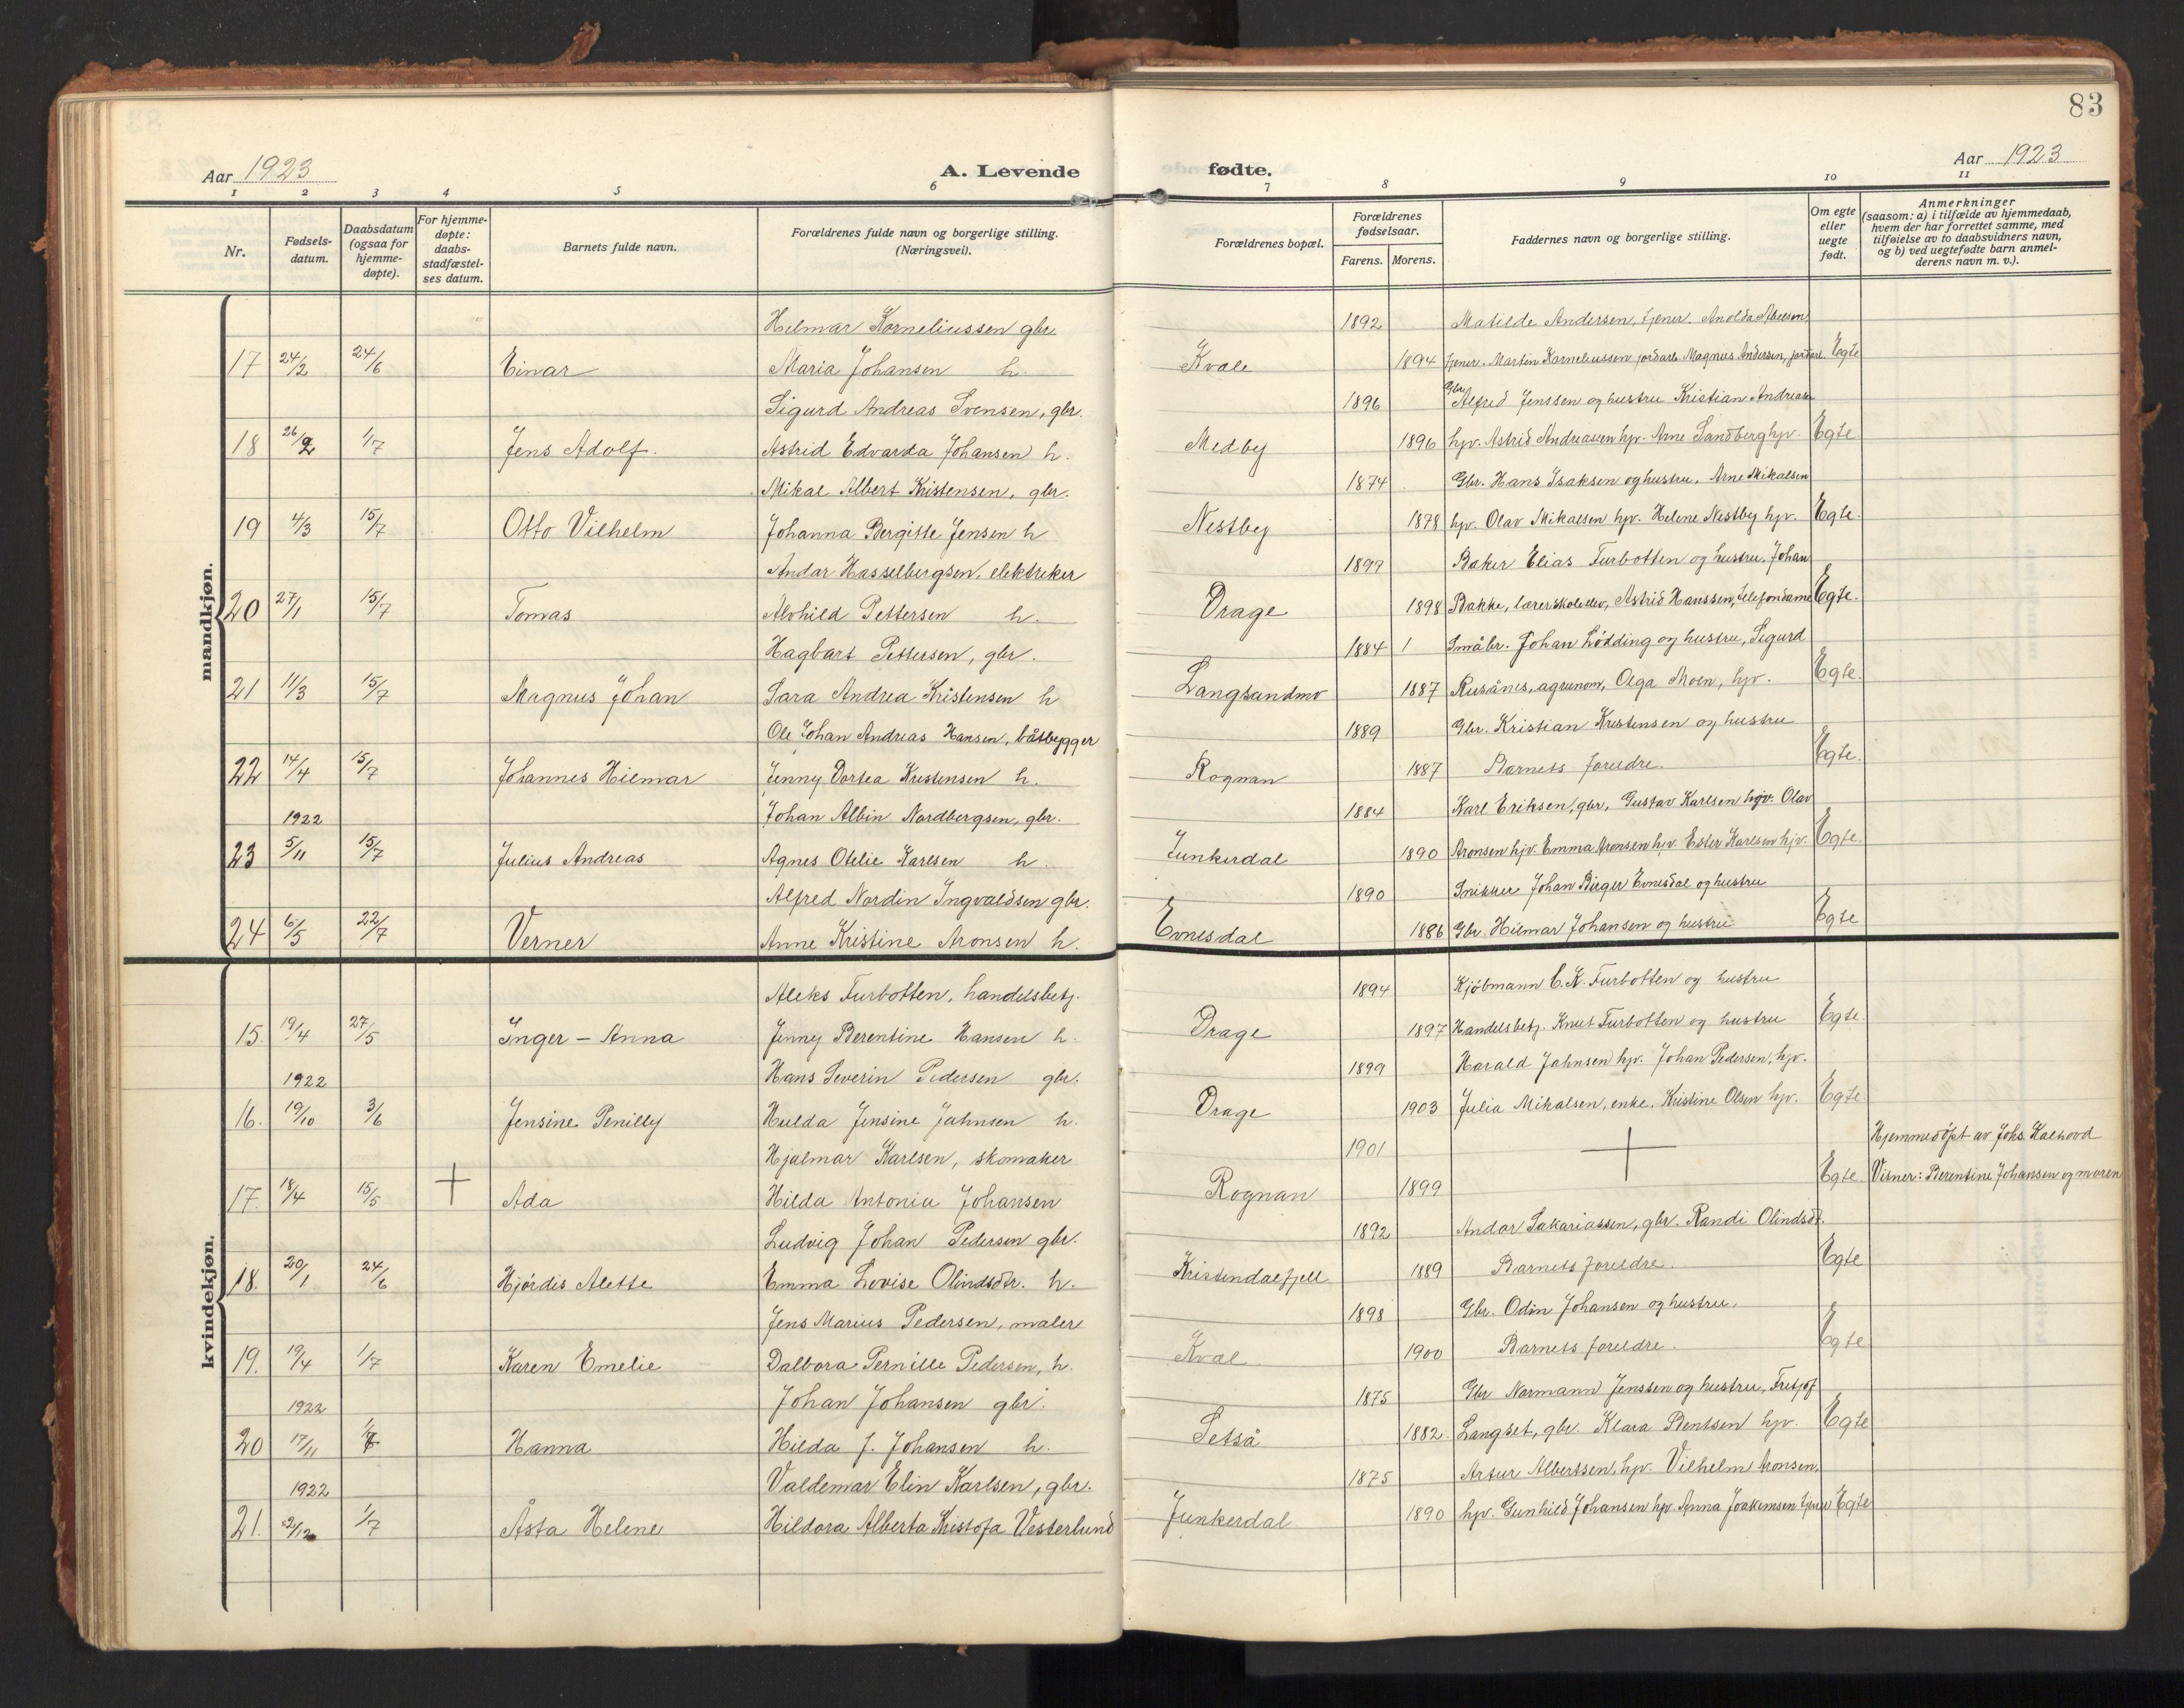 83
Aar 1923
A. Levende
fødte.
Aar 1923
1 2 3 4 5 6 7 8 9 10 11
Nr.
Fødsels-
datum.
Daabsdatum
(ogsaa for
hjemme-
døpte).
For hjemme-
døpte:
daabs-
stadfæstel-
ses datum.
Barnets fulde navn.
Forældrenes fulde navn og borgerlige stilling.
(Næringsvei).
Forældrenes bopæl.
Forældrenes
fødselsaar.
Farens. Morens.
Faddernes navn og borgerlige stilling.
Om egte
eller
uegte
født.
Anmerkninger
(saasom: a) i tilfælde av hjemmedaab,
hvem der har forrettet samme, med
tilføielse av to daabsvidners navn,
og b) ved uegtefødte barn anmel-
derens navn m. v.).
mandkjøn.
Hilmar Korneliussen gbr. 1892 Matilde Andersen, tjener.
17 24/2 24/6 Einar Maria Johansen h. Kvale 1894 tjener. Martin Korneliussen jordarb. Magnus Andersen, jordarb. Egte
Sigurd Andreas Svensen, gbr. 1896 Gbr. Alfred Jenssen og hustru Kristian Andreasen
18 26/2 1/7 Jens Adolf. Astrid Edvarda Johansen h. Medby 1896 hjv. Astrid Andreasen hjv. Arne Sandberg hjv. Egte
Mikal Albert Kristensen, gbr. 1874 Gbr. Hans Isaksen og hustru, Arne Mikalsen
19 4/3 15/7 Otto Vilhelm Johanna Bergitte Jensen h Nestby 1878 hjv. Olav Mikalsen hjv. Helene Nestby hjv. Egte.
Andor Hasselbergsen, elektriker 1897 Baker Elias Furbotten og hustru, Johan
20 27/1 15/7 Tomas Alvhild Pettersen h. Drage 1898 Bakke, lærerskoleelev, Astrid Hanssen, telefondame Egte.
Hagbart Pettersen, gbr. 1884 1 Småbr. Johan Lødding og hustru, Sigurd
21 11/3 15/7 Magnus Johan Sara Andrea Kristensen h Langsandmo 1887 Rusånes, agronom, Olga Moen, hjv. Egte.
Ole Johan Andreas Hansen, båtbygger 1889 Gbr. Kristian Kristensen og hustru
22 14/4 15/7 Johannes Hilmar Jenny Dortea Kristensen h. Rognan 1887 Barnets foreldre. Egte.
1922 Johan Albin Nordbergsen, gbr. 1884 Karl Eriksen, gbr, Gustav Karlsen hjv. Olav
23 5/11 15/7 Julius Andreas Agnes Otelie Karlsen h. Junkerdal 1890 Aronsen hjv. Emma Aronsen hjv. Ester Karlsen hjv. Egte.
Alfred Nordin Ingvaldsen gbr. 1890 Snikker Johan Birger Evnesdal og hustru
24 6/5 22/7 Verner Anne Kristine Aronsen h. Evnesdal 1886 Gbr. Hilmar Johansen og hustru Egte
kvindekjøn.
Aleks Furbotten, handelsbetj. 1894 Kjøbmann C. K. Furbotten og hustru
15. 19/4 27/5 Inger - Anna Jenny Berentine Hansen h. Drage 1897 Handelsbetj. Knut Furbotten og hustru Egte.
1922 Hans Severin Pedersen gbr. 1899 Harald Jahnsen hjv. Johan Pedersen, hjv.
16. 19/10 3/6 Jensine Penilly Hulda Jensine Jahnsen h. Drage 1903 Julia Mikalsen, enke. Kristine Olsen hjv. Egte
Hjalmar Karlsen, skomaker 1901 Hjemmedøpt av Johs. Kalhovd
17. 18/4 15/5 + Ada Hilda Antonia Johansen Rognan 1899 + Egte. Vitner: Berentine Johansen og moren
Ludvig Johan Pedersen gbr. 1892 Andor Sakariassen, gbr. Randi Olindsdt.
18. 20/1 24/6 Hjørdis Alette Emma Lovise Olindsdtr. h. Kristendalfjell 1889 Barnets foreldre. Egte
Jens Marius Pedersen, maler 1898 Gbr. Odin Johansen og hustru.
19. 19/4 1/7 Karen Emelie Dalbora Pernille Pedersen, h. Kval 1900 Barnets foreldre. Egte
1922 Johan Johansen gbr. 1875 Gbr Normann Jenssen og hustru, Fritjof
20 17/11 Hanna Hilda J. Johansen h. Setså 1882. Langset, gbr. Klara Bentsen hjv. Egte
1922 Valdemar Elin Karlsen, gbr. 1875 Artur Albertsen, hjv. Vilhelm Aronsen,
21. 2/12 1/7 Åsta Helene Hildora Alberta Kristofa Vesterlund Junkerdal 1890 hjv. Gunhild Johansen hjv. Anna Joakimsen tjener Egte